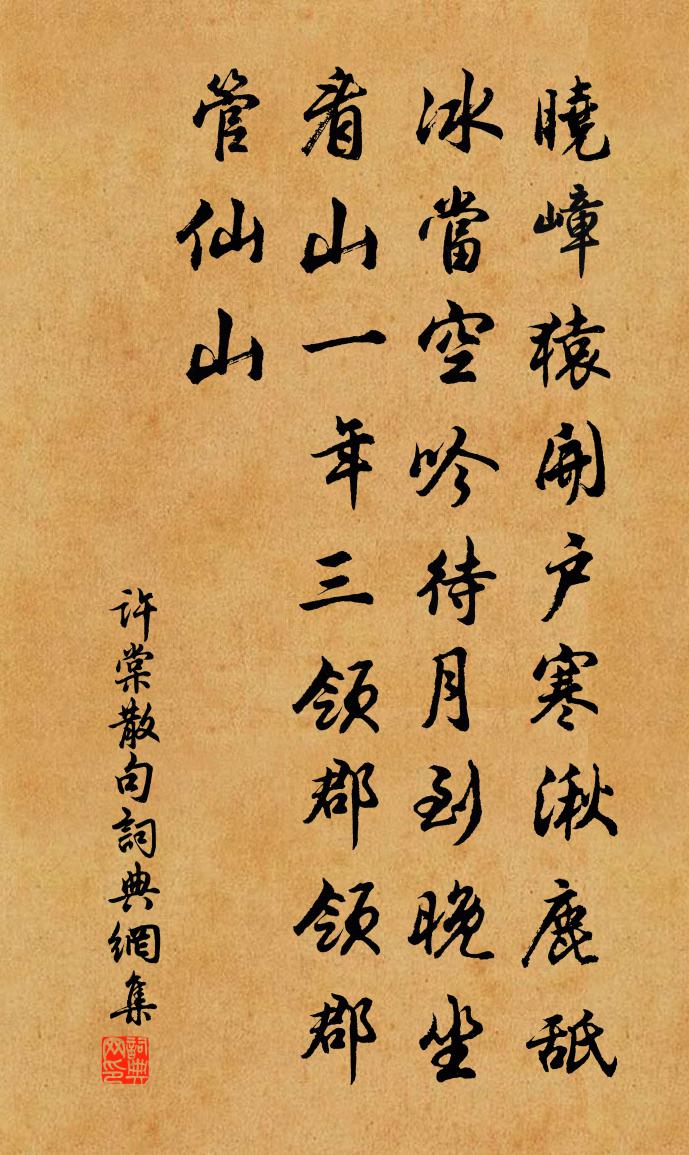 曉嶂猿開户寒湫鹿舐
冰當空吟待月到晚坐
看山一年三領郡領郡
管仙山
許棠散句詞典網集
詞典网印